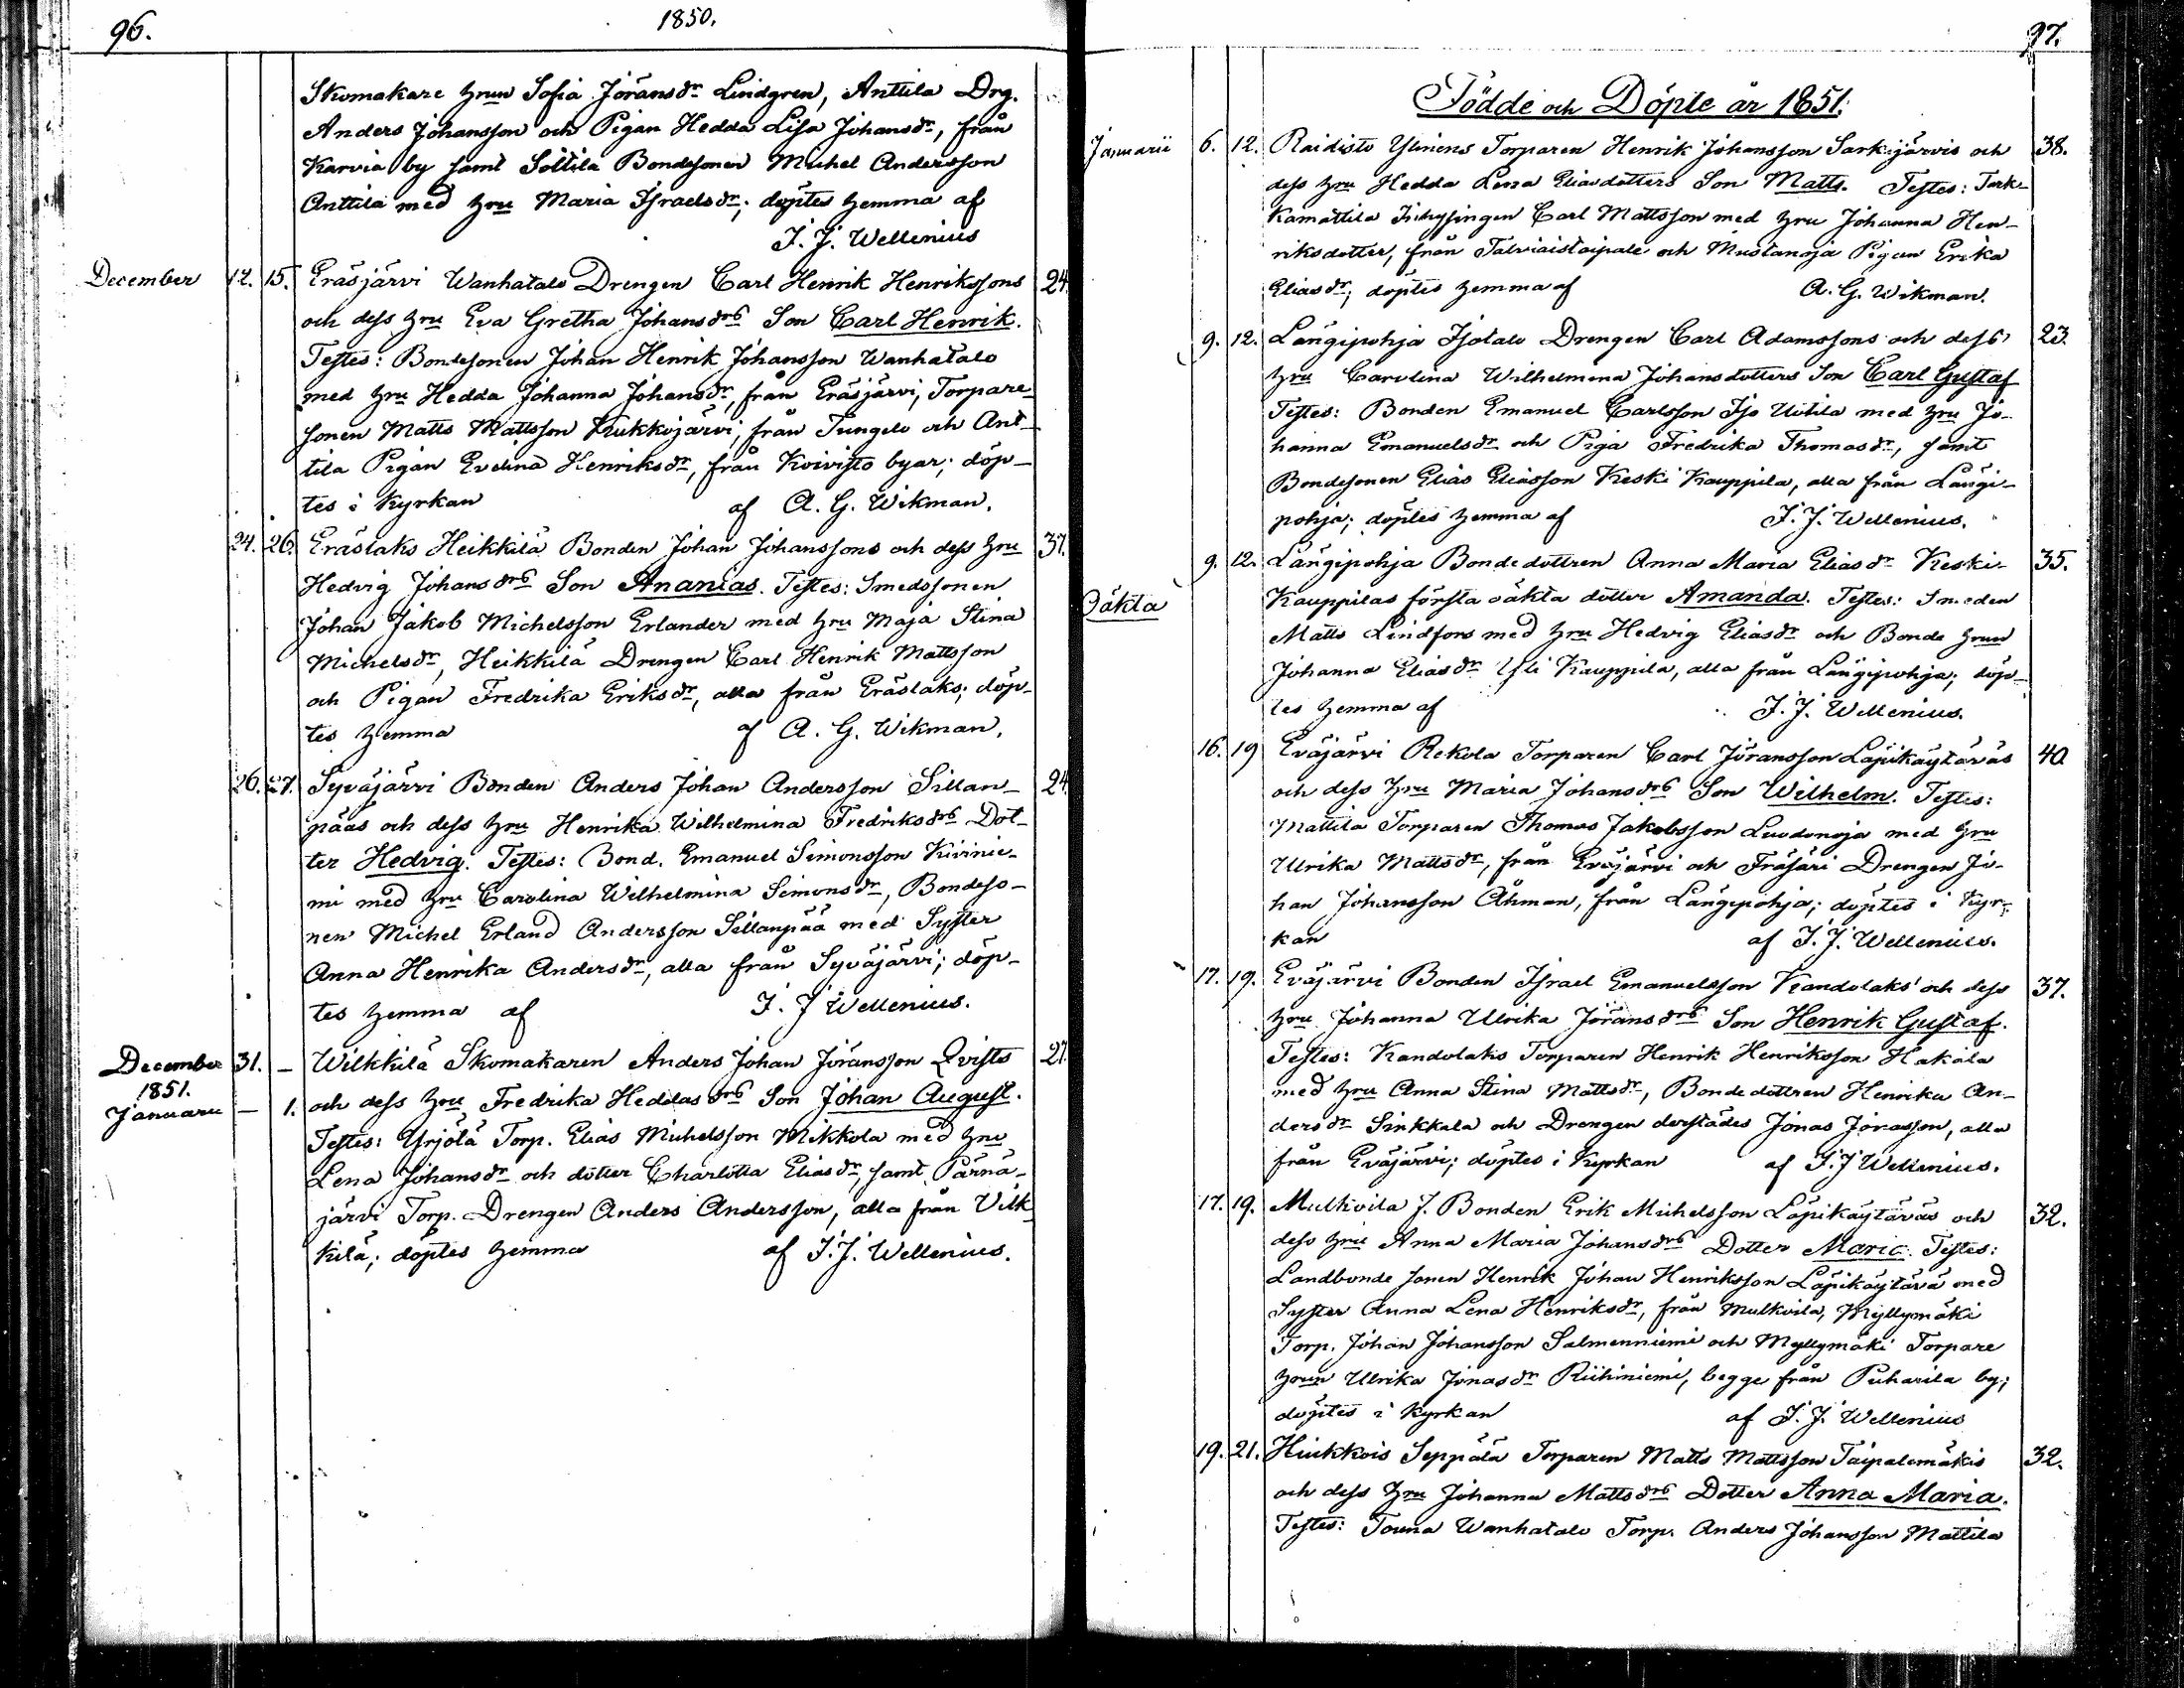 96.
1850.
Skomakare hrun Sofia Jöransdr Lindgren, Anttila Drg.
Anders Johansson och Pigan Hedda Lisa Johansdr, från
Karvia by samt Sottila Bondesonen Michel Andersson
Anttila med hru Maria Israelsdr; döptes hemma af
J. J. Wellenius
December 12. 15. Eräsjärvi Wanhatalo Drengen Carl Henrik Henrikssons 24.
och dess hru Eva Gretha Johansdrs Son Carl Henrik.
Testes: Bondesonen Johan Henrik Johansson Wanhatalo
med hru Hedda Johanna Johansdr, från Eräsjärvi, Torpare-
sonen Matts Mattsson Kukkojärvi, från Tungelo och Ant-
tila Pigan Evelina Henriksdr, från Koivisto byar; döp-
tes i Kyrkan af A. G. Wikman.
24. 26. Eräslaks Heikkilä Bonden Johan Johanssons och dess hru 37.
Hedvig Johansdrs Son Ananias. Testes: Smedssonen
Johan Jakob Michelsson Erlander med hru Maja Stina
Michelsdr, Heikkilä Drengen Carl Henrik Mattsson
och Pigan Fredrika Eriksdr, alla från Eräslaks; döp-
tes hemma af A. G. Wikman.
26. 27. Syväjärvi Bonden Anders Johan Andersson Sillan- 24.
pääs och dess hru Henrika Wilhelmina Fredriksdrs Dot-
ter Hedvig. Testes: Bond. Emanuel Simonsson Kivinie-
mi med hru Carolina Wilhelmina Simonsdr, Bondeso-
nen Michel Erland Andersson Sillanpää med Syster
Anna Henrika Andersdr, alla från Syväjärvi; döp-
tes hemma af J. J Wellenius.
December 31. — Wilkkilä Skomakaren Anders Johan Jöransson Qvists 27.
1851.
Januarii — 1. och dess hru Fredrika Heddasdrs Son Johan August.
Testes: Yrjölä Torp. Elias Michelsson Mikkola med hru
Lena Johansdr och dotter Charlotta Eliasdr, samt Pärnä-
järvi Torp. Drengen Anders Andersson, alla från Vilk-
kilä; döptes hemma af J. J. Wellenius.
97.
Födde och Döpte år 1851.
Januarii 6. 12. Raidisto Ylinens Torparen Henrik Johansson Sarkijärvis och 38.
dess hru Hedda Lena Eliædotters Son Matts. Testes: Turk-
kamattila Inhysingen Carl Mattsson med hru Johanna Hen-
riksdotter, från Talviaistaipale och Mustanoja Pigan Erika
Eliasdr; döptes hemma af A. G. Wikman.
9. 12. Längipohja Isotalo Drengen Carl Adamssons och dess 23.
hru Carolina Wilhelmina Johansdotters Son Carl Gustaf
Testes: Bonden Emanuel Carlsson Iso Uotila med hru Jo-
hanna Emanuelsdr och Piga Fredrika Thomasdr, samt
Bondesonen Elias Eliasson Keski Kauppila, alla från Längi-
pohja; döptes hemma af J. J. Wellenius.
9. 12. Längipohja Bondedottren Anna Maria Eliasdr Keski- 35.
Oäkta Kauppilas första oäkta dotter Amanda. Testes: Smeden
Matts Lindfors med hru Hedvig Eliasdr och Bonde hrun
Johanna Eliasdr Yli Kauppila, alla från Längipohja; döp-
tes hemma af J. J. Wellenius.
16. 19 Eväjärvi Rekola Torparen Carl Jöransson Läpikäytäväs 40.
och dess hru Maria Johansdrs Son Wilhelm. Testes:
Mattila Torparen Thomas Jakobsson Luodonoja med hru
Ulrika Mattsdr, från Eväjärvi och Fräsäri Drengen Jo-
han Johansson Åhman, från Längipohja; döptes i Kyr-
kan af J. J. Wellenius.
17. 19. Eväjärvi Bonden Israel Emanuelsson Kandolaks' och dess 37.
hru Johanna Ulrika Jöransdrs Son Henrik Gustaf.
Testes: Kandolaks Torparen Henrik Henriksson Hakala
med hru Anna Stina Mattsdr, Bondedottren Henrika An-
dersdr Sinkkala och Drengen derstädes Jonas Jonasson, alla
från Eväjärvi; döptes i Kyrkan af J. J Wellenius.
17. 19. Mulkvila J. Bonden Erik Michelsson Läpikäytäväs och 32.
dess hru Anna Maria Johansdrs Dotter Maria. Testes:
Landbonde sonen Henrik Johan Henriksson Läpikäytävä med
Syster Anna Lena Henriksdr, från Mulkvila, Myllymäki
Torp. Johan Johansson Salmenniemi och Myllymäki Torpare
hrun Ulrika Jonasdr Riihiniemi, begge från Puharila by;
döptes i Kyrkan af J. J. Wellenius
19. 21. Hiukkois Seppälä Torparen Matts Mattsson Taipalemäkis 32.
och dess hru Johanna Mattsdrs Dotter Anna Maria.
Testes: Touna Wanhatalo Torp. Anders Johansson Mattila